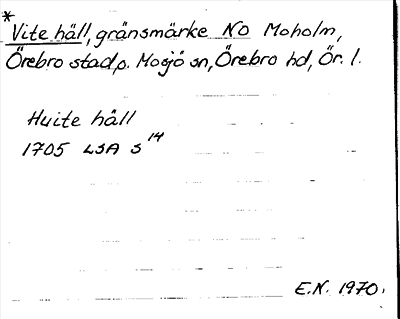 *
Vite häll, gränsmärke NO Moholm,
Örebro stad, o. Mosjö sn, Örebro hd, Ör. l.
Huite häll
1705 LSA S 14
E.N. 1970.